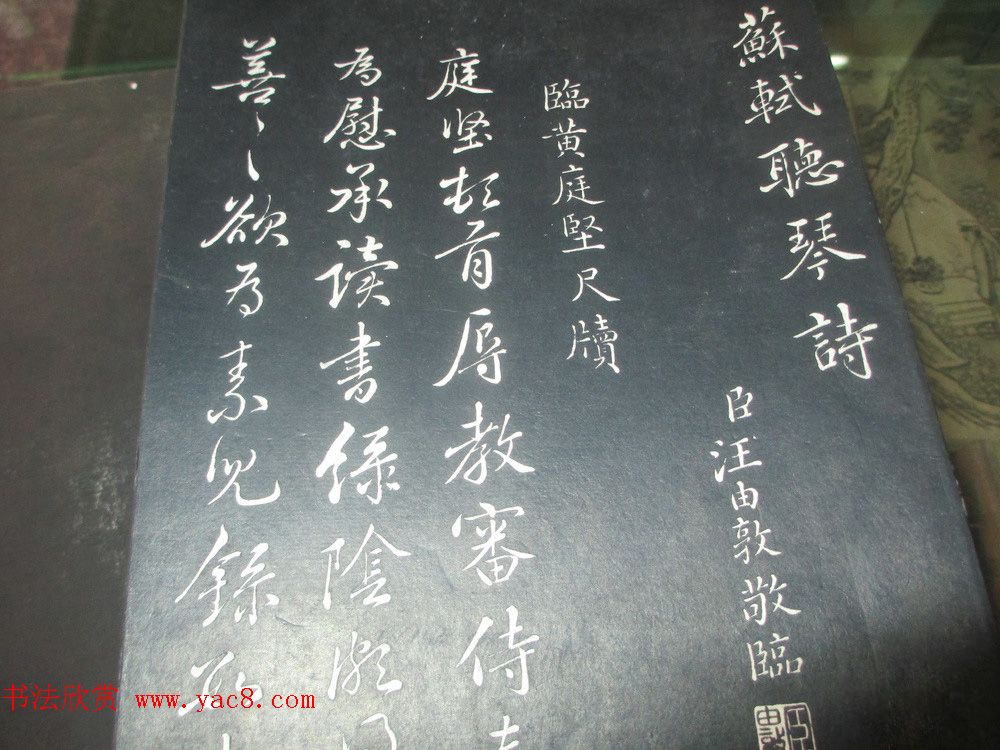 蘇軾聽琴詩
臣汪由敦敬臨
臨黃庭堅尺牘
庭坚頓首辱教審侍
為慰承读書綠陰頗
善〻欲為素兒錄
书法欣赏 www.yac8.com